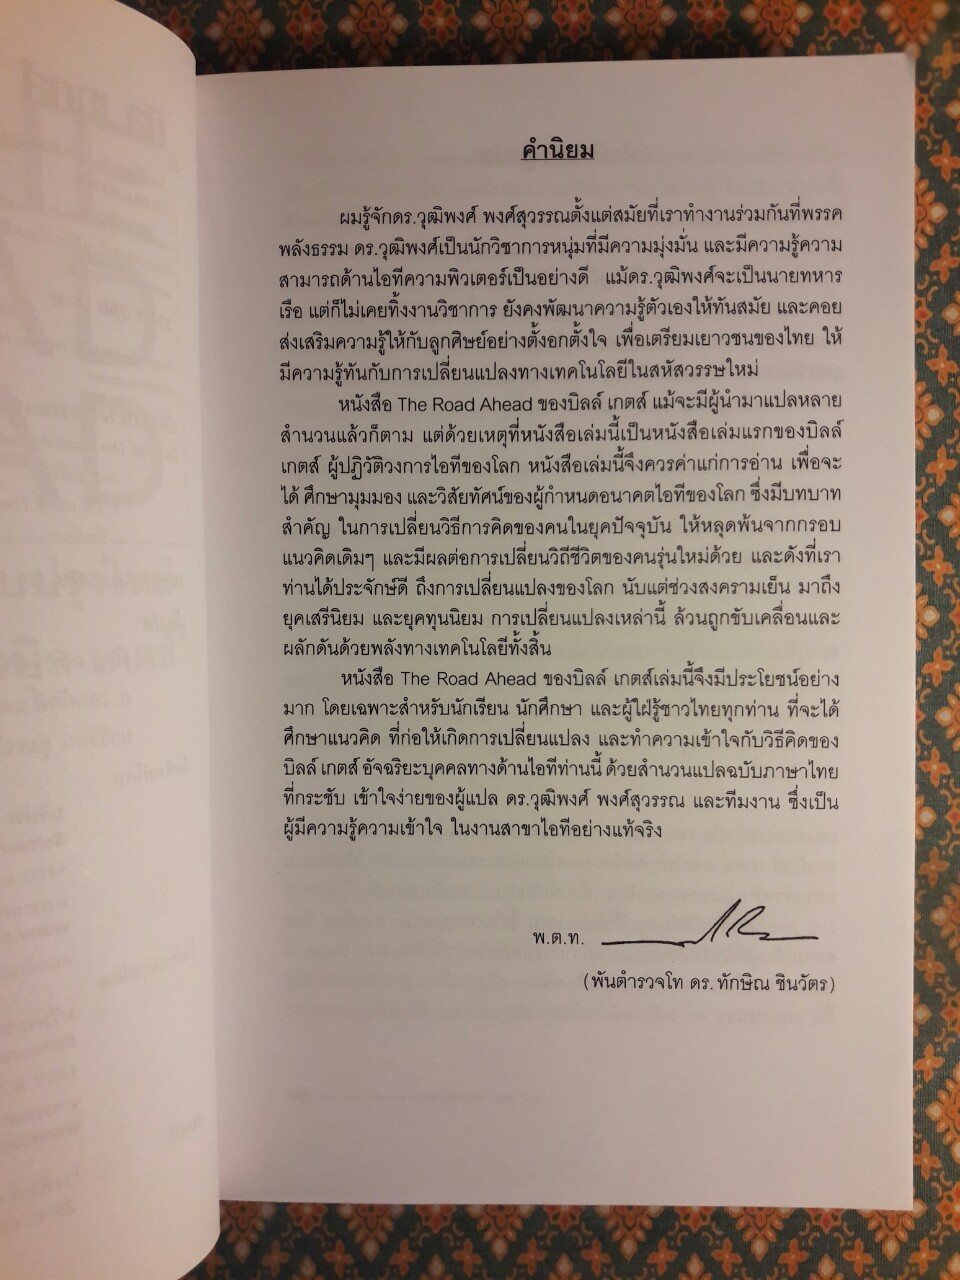 คำนิยม
ผมรู้จักดร.วุฒิพงศ์ พงศ์สุวรรณตั้งแต่สมัยที่เราทำงานร่วมกันที่พรรค
พลังธรรม ดร.วุฒิพงศ์เป็นนักวิชาการหนุ่มที่มีความมุ่งมั่น และมีความรู้ความ
สามารถด้านไอทีความพิวเตอร์เป็นอย่างดี แม้ดร.วุฒิพงศ์จะเป็นนายทหาร
เรือ แต่ก็ไม่เคยทิ้งงานวิชาการ ยังคงพัฒนาความรู้ตัวเองให้ทันสมัย และคอย
ส่งเสริมความรู้ให้กับลูกศิษย์อย่างตั้งอกตั้งใจ เพื่อเตรียมเยาวชนของไทย ให้
มีความรู้ทันกับการเปลี่ยนแปลงทางเทคโนโลยีในสหัสวรรษใหม่
หนังสือ The Road Ahead ของบิลล์ เกตส์ แม้จะมีผู้นำมาแปลหลาย
สำนวนแล้วก็ตาม แต่ด้วยเหตุที่หนังสือเล่มนี้เป็นหนังสือเล่มแรกของบิลล์
เกตส์ ผู้ปฏิวัติวงการไอทีของโลก หนังสือเล่มนี้จึงควรค่าแก่การอ่าน เพื่อจะ
ได้ ศึกษามุมมอง และวิสัยทัศน์ของผู้กำหนดอนาคตไอทีของโลก ซึ่งมีบทบาท
สำคัญ ในการเปลี่ยนวิธีการคิดของคนในยุคปัจจุบัน ให้หลุดพ้นจากกรอบ
แนวคิดเดิมๆ และมีผลต่อการเปลี่ยนวิถีชีวิตของคนรุ่นใหม่ด้วย และดังที่เรา
ท่านได้ประจักษ์ดี ถึงการเปลี่ยนแปลงของโลก นับแต่ช่วงสงครามเย็น มาถึง
ยุคเสรีนิยม และยุคทุนนิยม การเปลี่ยนแปลงเหล่านี้ ล้วนถูกขับเคลื่อนและ
ผลักดันด้วยพลังทางเทคโนโลยีทั้งสิ้น
หนังสือ The Road Ahead ของบิลล์ เกตส์เล่มนี้จึงมีประโยชน์อย่าง
มาก โดยเฉพาะสำหรับนักเรียน นักศึกษา และผู้ใฝ่รู้ชาวไทยทุกท่าน ที่จะได้
ศึกษาแนวคิด ที่ก่อให้เกิดการเปลี่ยนแปลง และทำความเข้าใจกับวิธีคิดของ
บิลล์ เกตส์ อัจฉริยะบุคคลทางด้านไอทีท่านนี้ ด้วยสำนวนแปลฉบับภาษาไทย
ที่กระชับ เข้าใจง่ายของผู้แปล ดร.วุฒิพงศ์ พงศ์สุวรรณ และทีมงาน ซึ่งเป็น
ผู้มีความรู้ความเข้าใจ ในงานสาขาไอทีอย่างแท้จริง
พ.ต.ท.
(พันตำรวจโท ดร. ทักษิณ ชินวัตร)